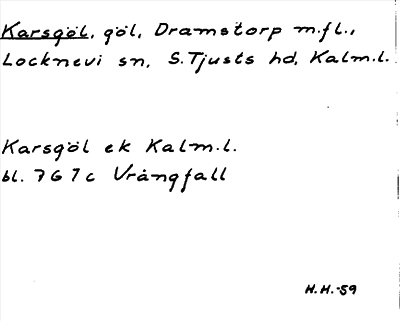 Karsgöl, göl, Dramstorp m.fl.,
Locknevi sn, S. Tjusts hd, Kalm.l.
Karsgöl ek Kalm.l.
bl. 7G7c Vrångfall
H.H.-59